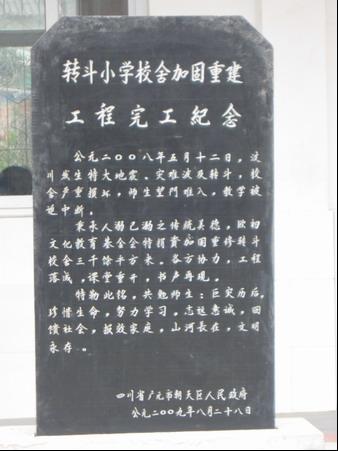 转斗小学校舍加固重建
工程完工纪念
公元二〇〇八年五月十二日，汶
川发生特大地震。灾难波及转斗，校
舍严重损坏，师生望门难入，教学被
迫中断。
秉承人溺己溺之传统美德，欧初
文化教育基金会特捐资加固重修转斗
校舍三千馀平方米。各方协力，工程
落成，课堂重开，书声再现。
特勒此铭，共勉师生：巨灾历后，
珍惜生命，努力学习，志远意诚，回
馈社会，报效家庭，山河长在，文明
永存。
四川省广元市朝天区人民政府
公元二〇〇九年八月二十八日